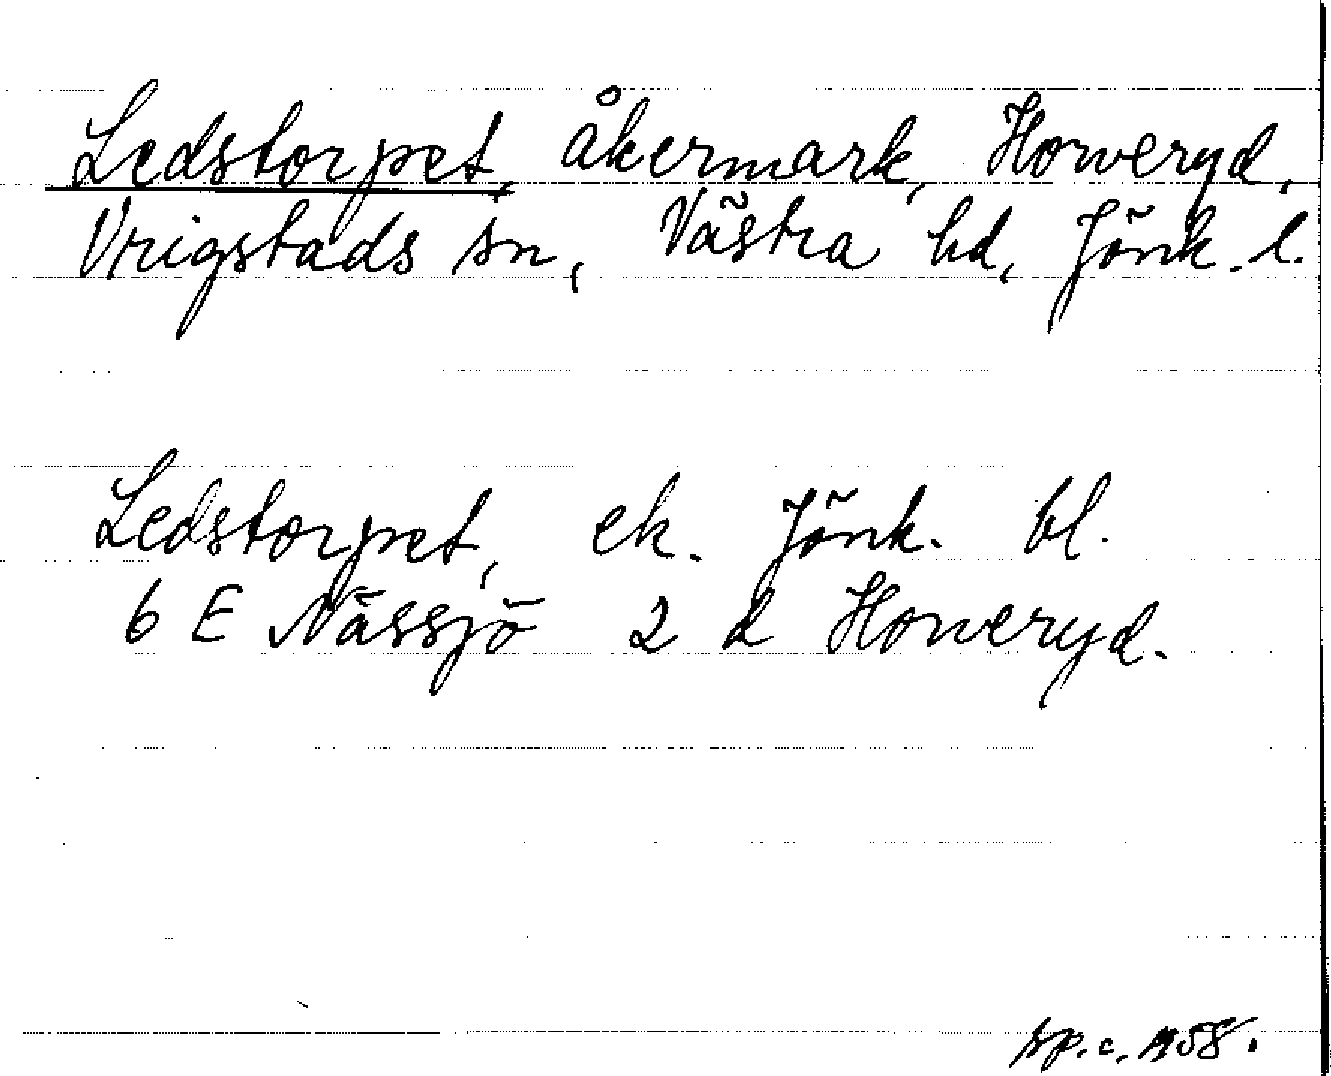 Ledstorpet, åkermark, Horveryd,
Vrigstads sn, Västra hd, Jönk. l.
Ledstorpet, ek. Jönk. bl.
6 E Nässjö 2 d Horveryd.
sp.c. 1958.